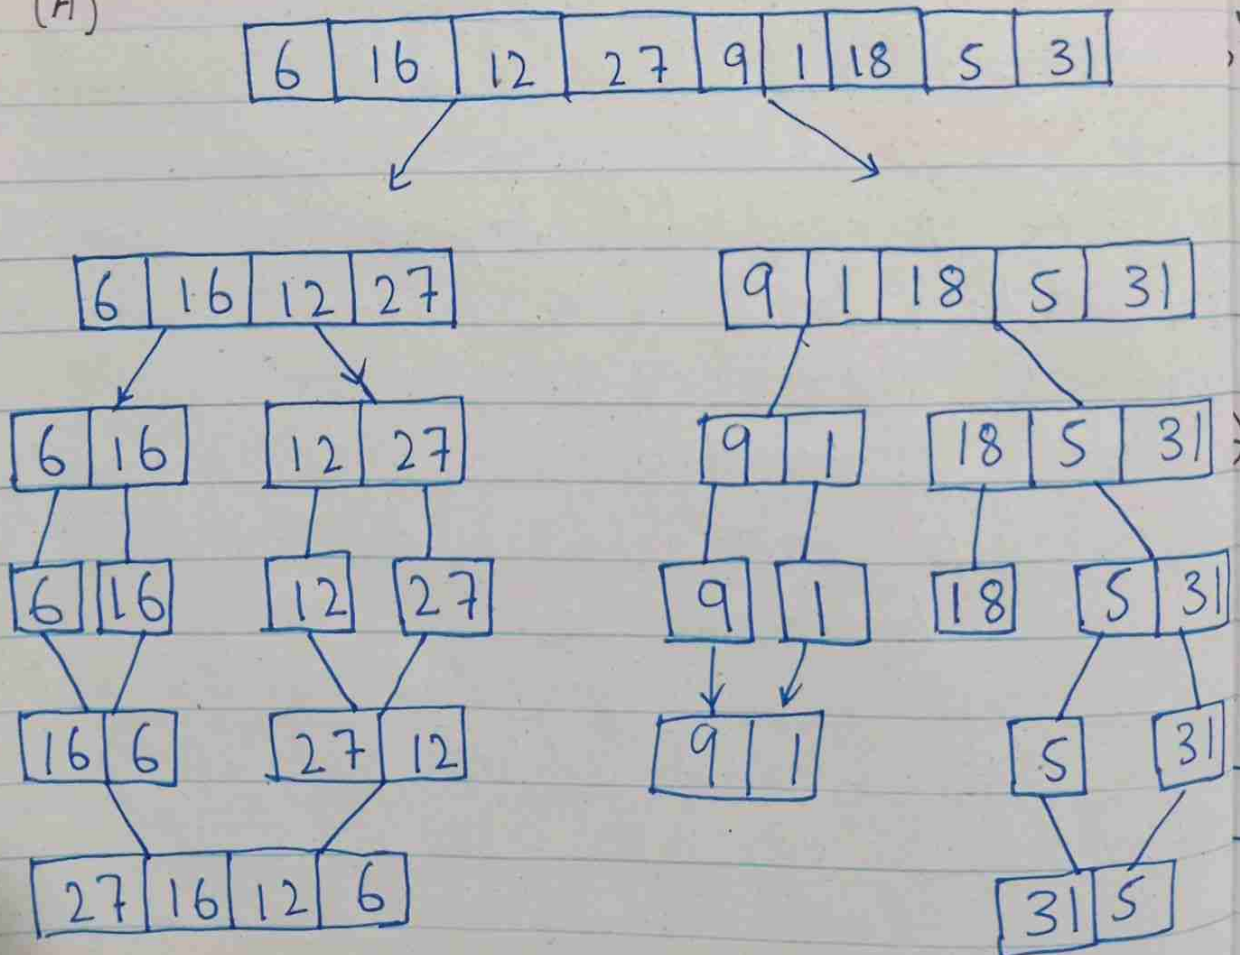 (A)
6 16 12 27 9 1 18 5 31
6 16 12 27 9 1 18 5 31
6 16 12 27 9 1 18 5 31
6 16 12 27 9 1 18 5 31
16 6 27 12 9 1 5 31
27 16 12 6 31 5